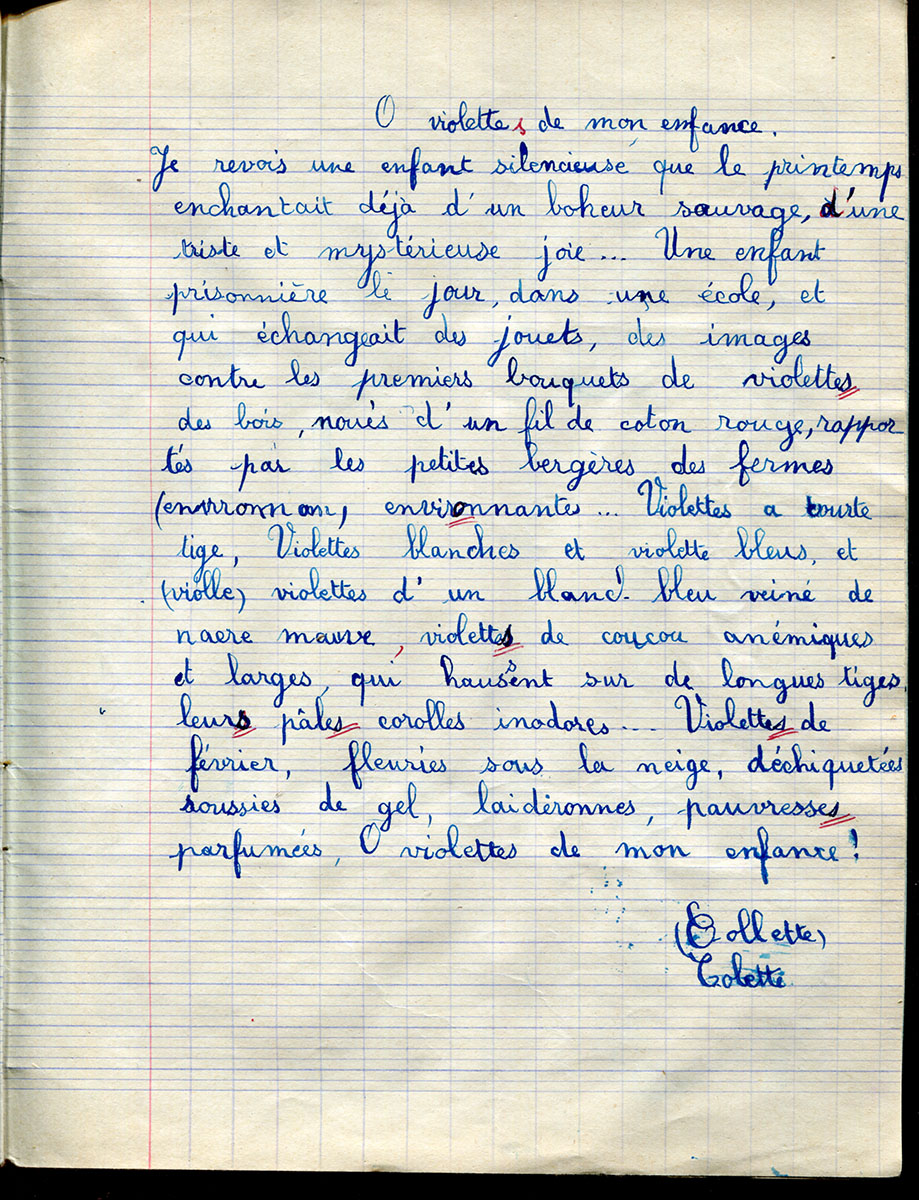 O violettes de mon enfance.
Je revois une enfant silencieuse que le printemps
enchantait déjà d'un boheur sauvage, d'une
triste et mystérieuse joie... Une enfant
prisonnière le jour, dans une école, et
qui échangeait des jouets, des images
contre les premiers bouquets de violettes
des bois, noués d'un fil de coton rouge, rappor
tés par les petites bergères des fermes
(environnan) environnantes... Violettes a courte
tige, Violettes blanches et violette bleus, et
(violle) violettes d'un blanc bleu veiné de
nacre mauve, violettes de coucou anémiques
et larges, qui haussent sur de longues tiges,
leurs pâles corolles inodores... Violettes de
février, fleuries sous la neige, déchiquetées
roussies de gel, laideronnes, pauvresses
parfumées, O violettes de mon enfance!
(Collette)
Colette